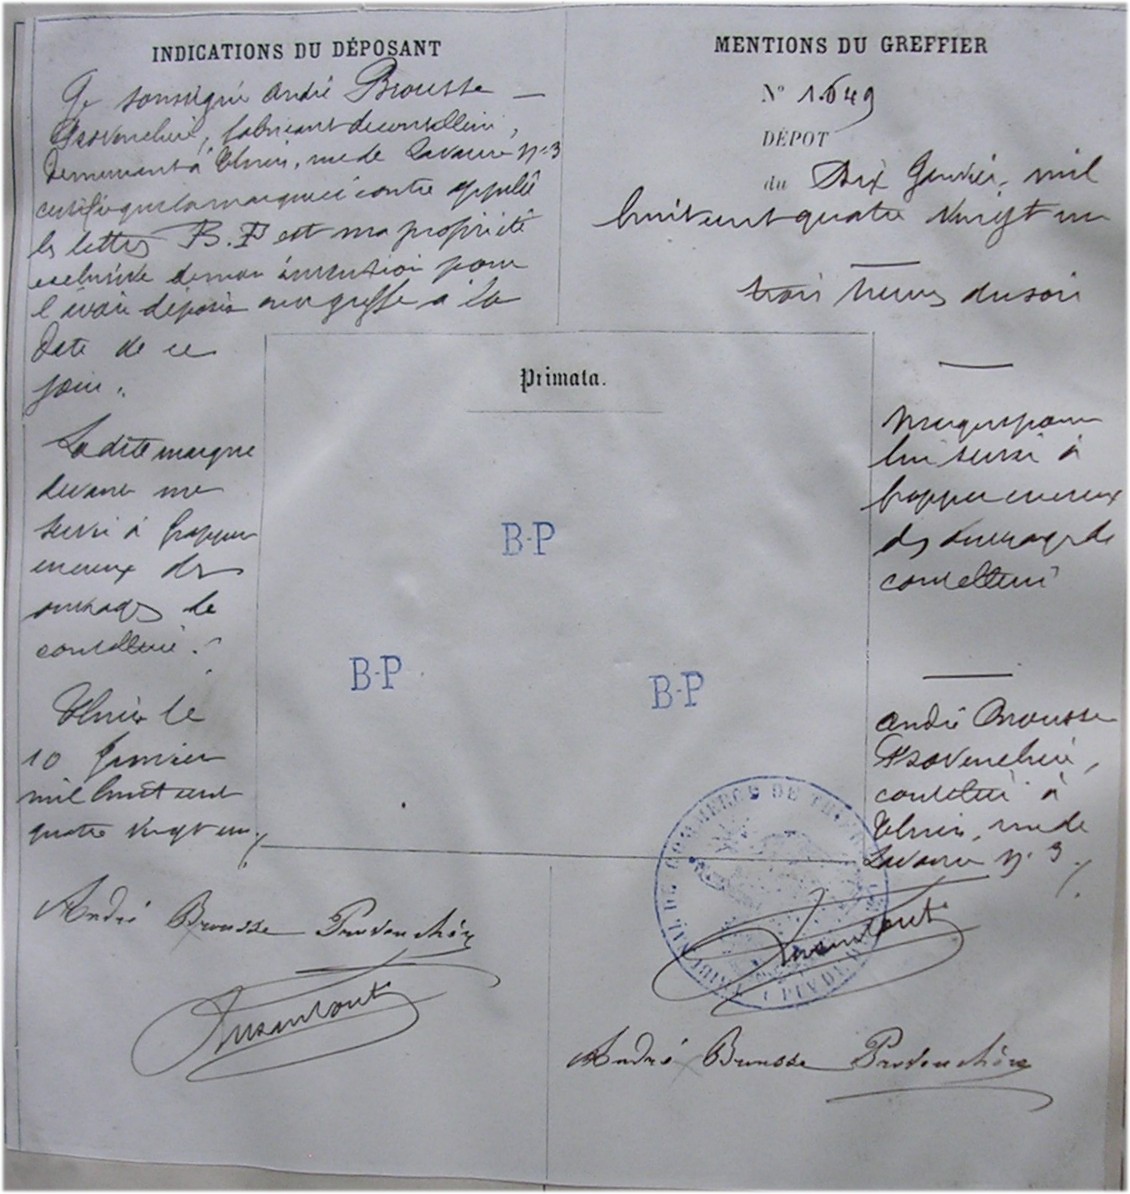 INDICATIONS DU DÉPOSANT
Je soussigné André Brousse
Provenchère, fabricant de coutellerie,
Demeurant à Thiers, rue de Lavaure N° 3
certifie que la marque ci contre appelée
les lettres B.P est ma propriété
exclusive de mon invention pour
l'avoir déposée au greffe à la
Date de ce
jour.
La dite marque
devant me
servir à frapper
en creux des
ouvrages de
coutellerie.
Thiers le
10 Janvier
mil huit cent
quatre vingt un
André Brousse Provenchère
MENTIONS DU GREFFIER
N° 1.649
DÉPOT
du Dix Janvier mil
huit cent quatre vingt un
trois heures du soir
Marque pour
lui servir à
frapper en creux
des ouvrages de
coutellerie
André Brousse
Provenchère,
coutelier à
Thiers, rue de
Lavaure N° 3
André Brousse Provenchère
Primata.
B-P
B-P
B-P
TRIBUNAL DE COMMERCE DE THIERS